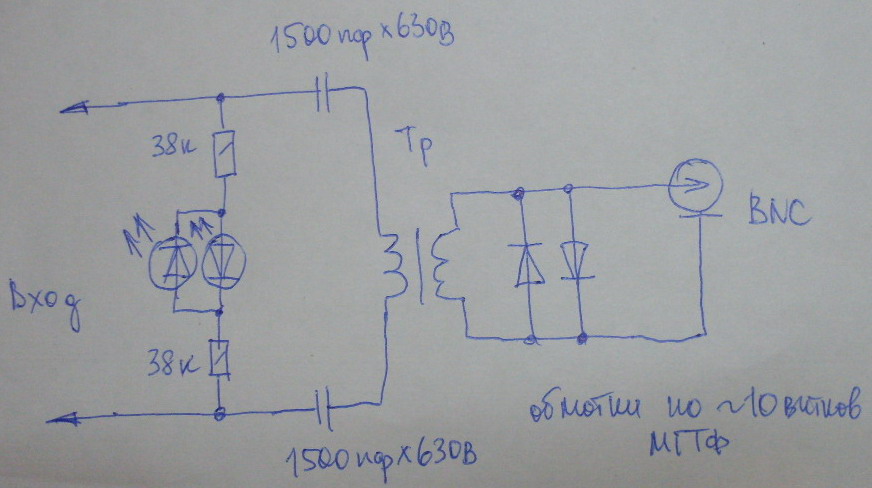 1500пф×630В
38к
Тр
BNC
Вход
38к
1500пф×630В
обмотки по ~10 витков
МГТФ